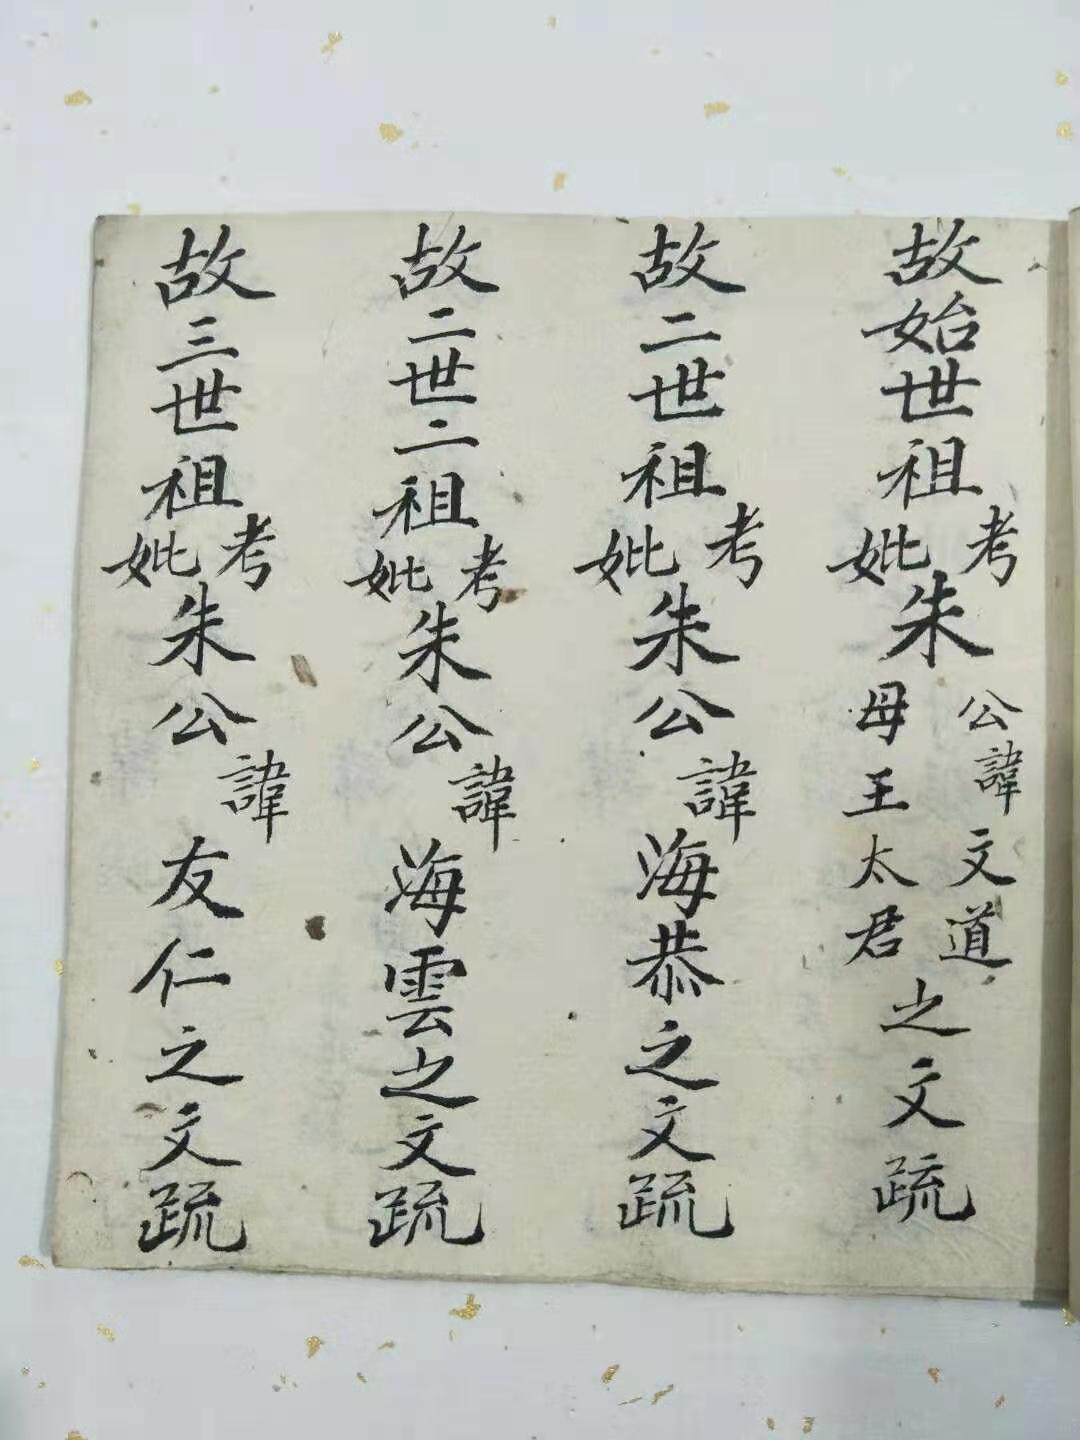 故始世祖考妣朱公諱文道母王太君之文疏
故二世祖考妣朱公諱海恭之文疏
故二世二祖考妣朱公諱海雲之文疏
故三世祖考妣朱公諱友仁之文疏